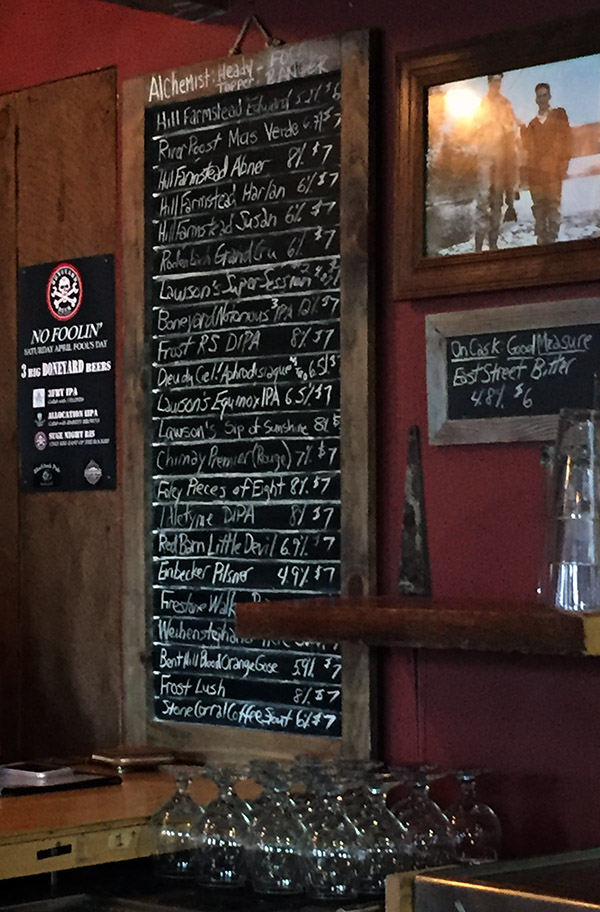 Alchemist: Heady Topper - Focal Banger
Hill Farmstead Edward 5.2% $6
River Roost Mas Verde $7
Hill Farmstead Abner 8% $7
Hill Farmstead Harlan 6% $7
Hill Farmstead Susan 6% $7
Rodenbach Grand Cru 6% $7
Lawson's Super Session
Boneyard Notorious ³IPA 12% $7
Frost RS DIPA 8% $7
Dieu du Ciel! Aphrodisiaque 6.5% $7
Lawson's Equinox IPA 6.5% $7
Lawson's Sip of Sunshine 8%
Chimay Premier (Rouge) 7% $7
Foley Pieces of Eight 8% $7
Idletyme DIPA 8% $7
Red Barn Little Devil 6.9% $7
Einbecker Pilsner 4.9% $7
Firestone Walk
Weihenstephan
Bent Hill Blood Orange Gose 5.9% $7
Frost Lush 8% $7
Stone Corral Coffee Stout 6% $7
BONEYARD
BEER
NO FOOLIN'
SATURDAY APRIL FOOL'S DAY
3 BIG BONEYARD BEERS
3FBV IPA
ALLOCATION IIPA
SUGE NIGHT RIS
On Cask Good Measure
East Street Bitter
4.8% $6